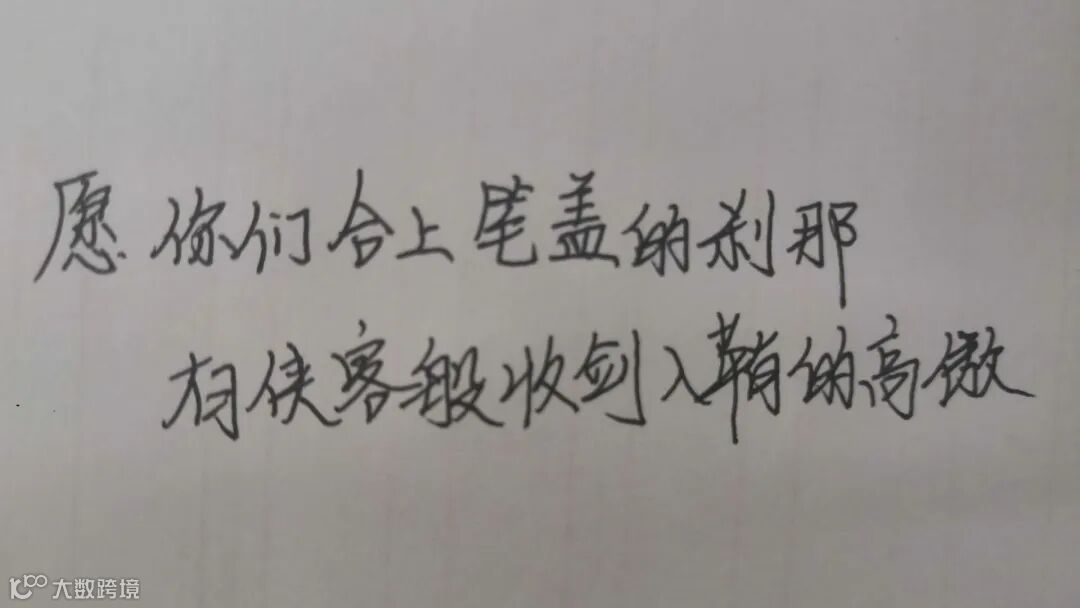 愿你们合上笔盖的刹那
有侠客般收剑入鞘的高傲
大数跨境